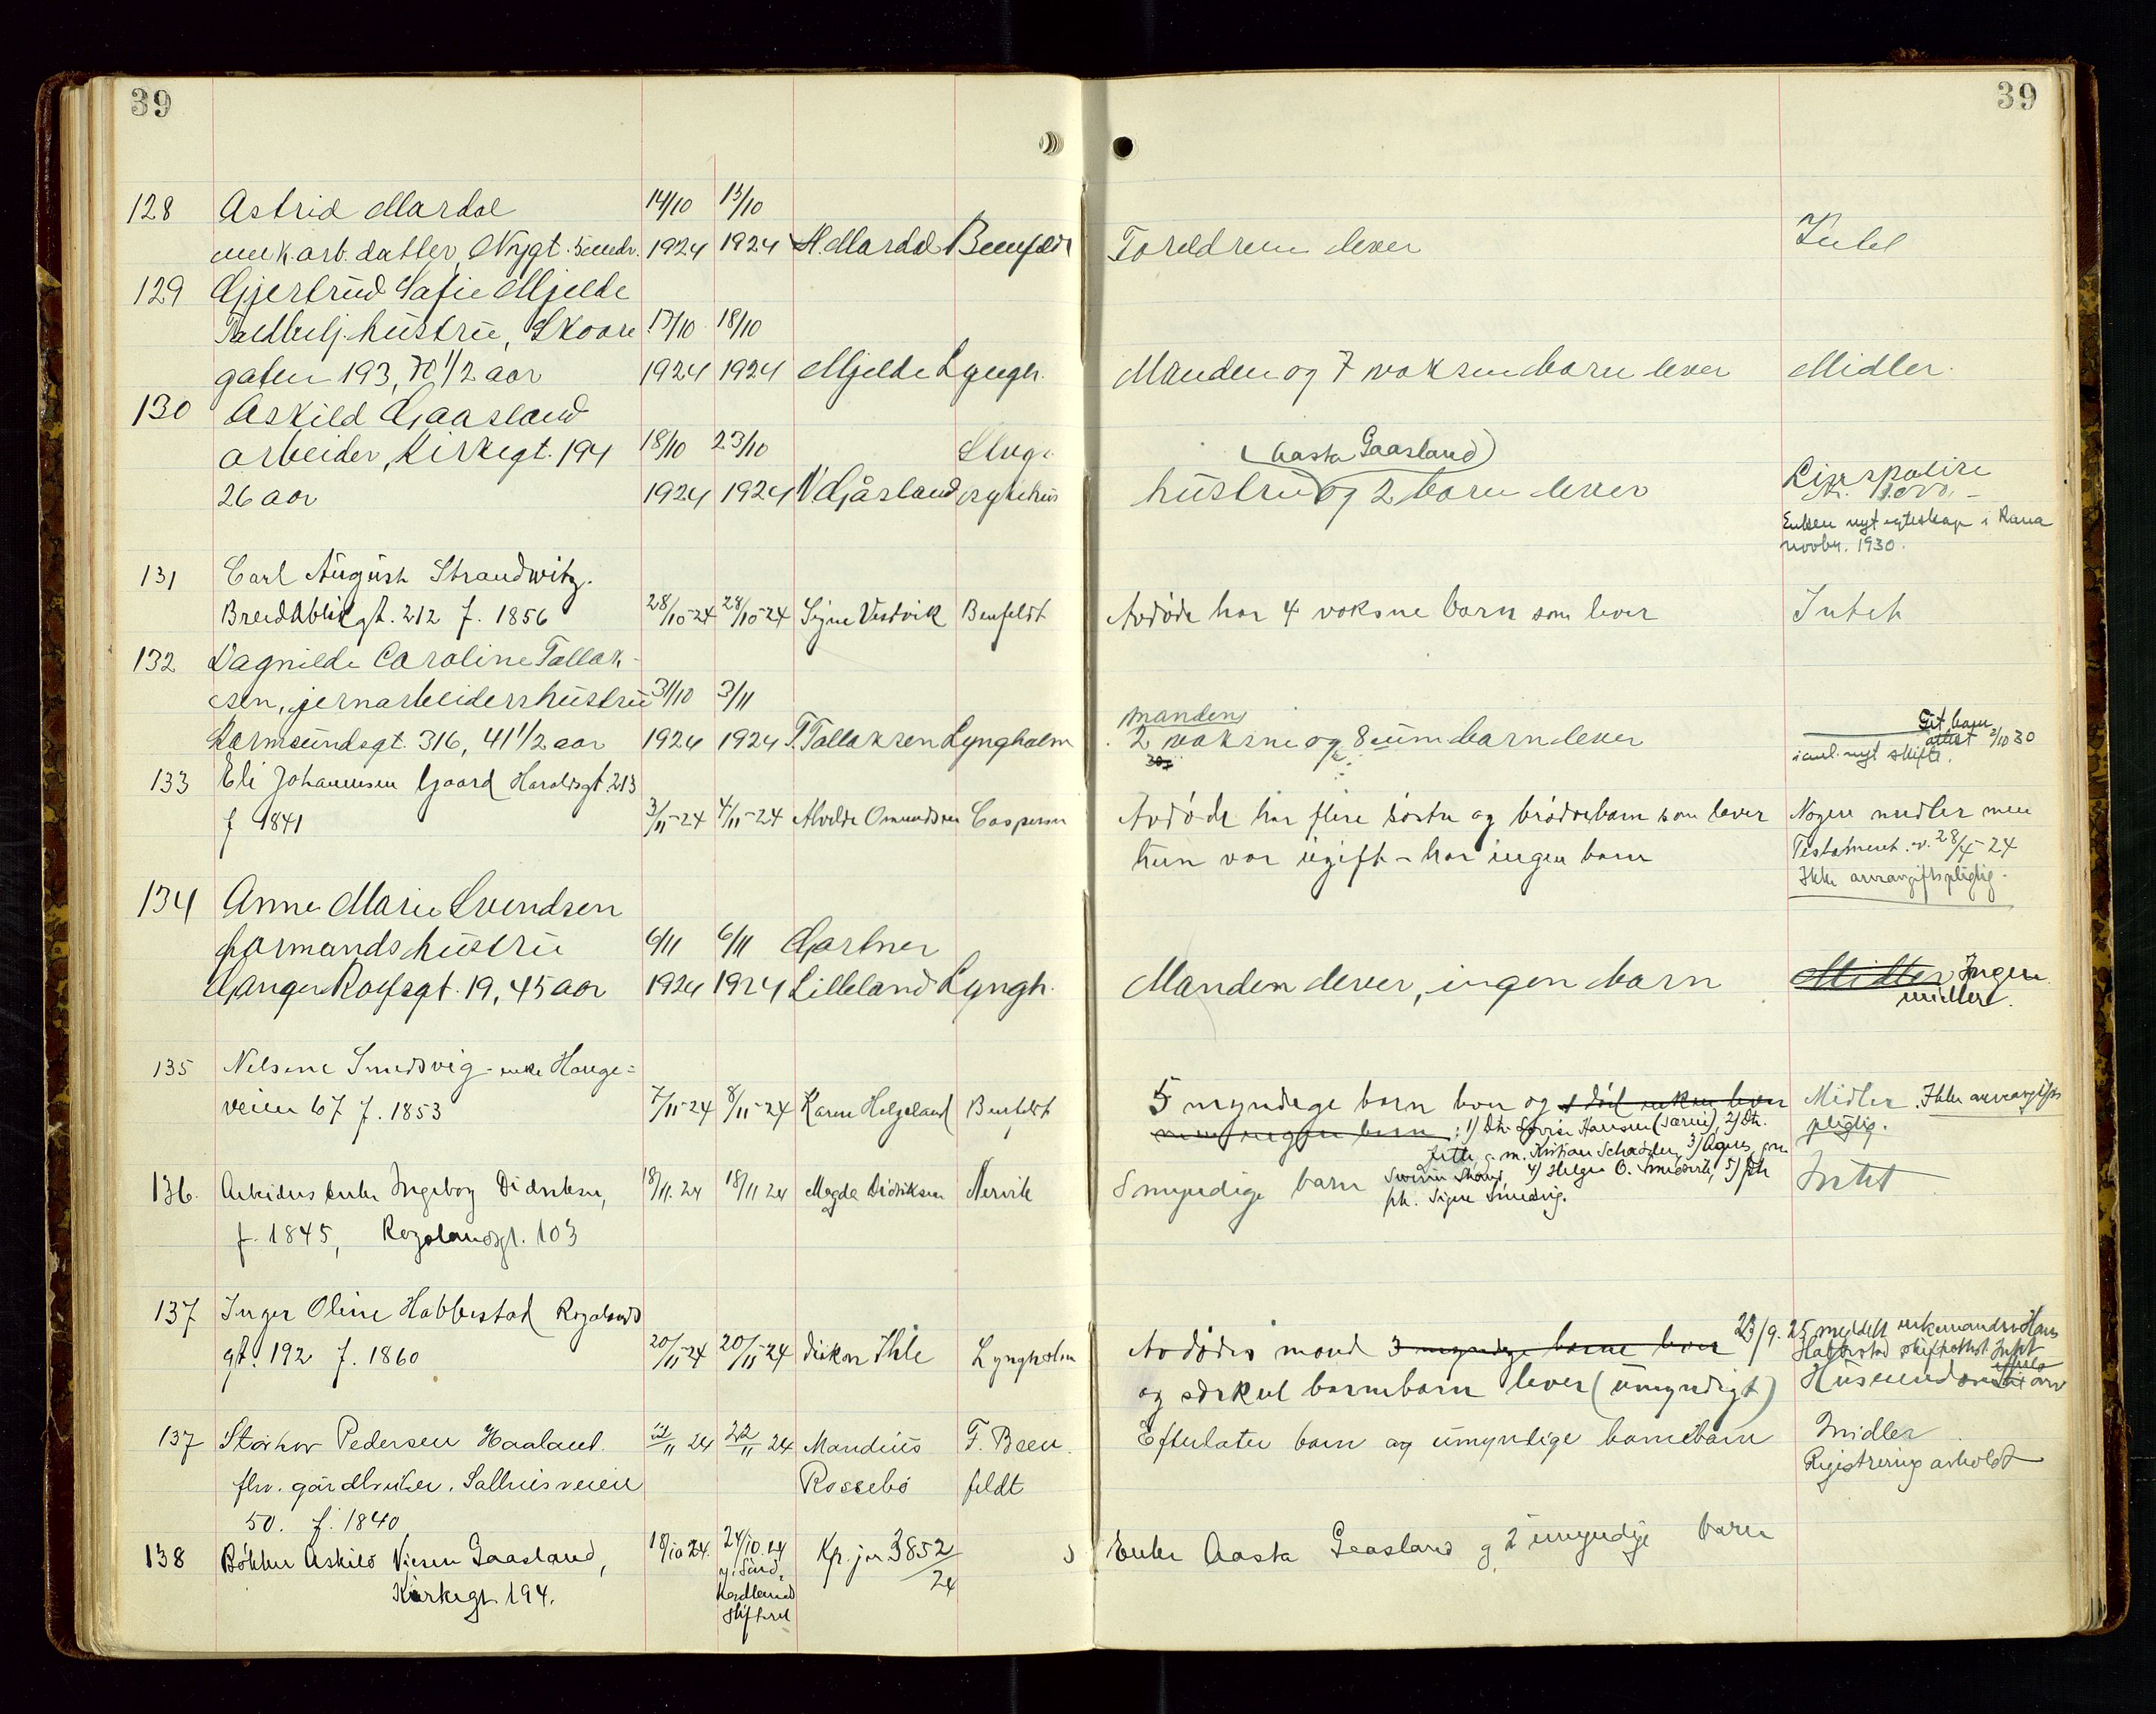 39
39
128 Astrid Mardal 14/10 13/10
mek. arb. datter, Nygt. 5 mdr. 1924 1924 H. Mardal Benfeldt Foreldrene lever Intet
129 Gjertrud Sofie Mjelde
hustru, Skaare 17/10 18/10
gaten 193, 70 1/2 aar 1924 1924 Mjelde Lyngh. Manden og 7 voksne barn lever Midler.
130 Askild Gaasland
arbeider, Kirkegt. 194 18/10 23/10
(Aasta Gaasland)
26 aar 1924 1924 N Gåsland sykehus hustru og 2 barn lever Livspolise
kr. 1000,-
Enken nyt egteskap i Rana
novbr. 1930.
131 Carl August Strandwitz.
Breidablikgt. 212 f. 1856 28/10-24 28/10-24 Signe Vestvik Benfeldt Avdøde har 4 voksne barn som lever Intet
132 Dagnilde Caroline Tollak-
sen, jernarbeiders hustru 31/10 3/11
manden
Karmsundsgt. 316, 41 1/2 aar 1924 1924 T. Tollaksen Lyngholm 2 voksne og 8 um barn lever
i anl. nyt skifte. 2/10 30
133 Eli Johannesen Gaard Haraldsgt. 213
f 1841 3/11-24 4/11-24 Alvilde Omundsen Caspersen Avdøde har flere søstre og brødrebarn som lever Nogen midler men
hun var ugift - har ingen barn Testament. v. 28/4-24
Ikke arveavgiftspligtig.
134 Anne Marie Svendsen
formands hustru 6/11 6/11 Gartner
Ganger Rolfsgt. 19, 45 aar 1924 1924 Lilleland Lyngh. Manden lever, ingen barn Midler Ingen
midler.
135 Nelsine Smedsvig - enke Hauge=
veien 67 f. 1853 7/11-24 8/11-24 Karen Helgeland Benfeldt 5 myndige barn lever og 1 død enken lever Midler. Ikke arveavgifts
men ingen barn ; 1) Dh. Lovise Hansen 2) Dh.
pligtig.
g. m. Kristian Schrøder, 3) Agnes, gm
136. Arbeiders enke Ingeborg Didriksen, 18/11. 24 18/11 24 Magda Didriksen Nervik 5 myndige barn 4) Helge O. Smedsvik, 5) Dh Intet
frk. Signe Smedsvig.
f. 1845, Rogalandsgt. 103
137 Inger Oline Habbestad Rogalands
gt. 192 f. 1860 20/11-24 20/11-24 Lyngholm Avdødes mand 3 myndige barn lever 23/9. 25 meddelt enkemand Hans
Habbestad skifteattest
og særkul barnebarn lever (umyndigt)
137 Størker Pedersen Haaland. 22/11 24 22/11 24 Mandius F. Been Efterlater barn og umyndige barnebarn Midler
fhv. gårdbruker. Salhusveien Rossebø feldt Registrering avholdt
50. f. 1840
138 Bøkker Askild Gaasland, 18/10 24. 24/10.24 Kp. jr 3852/24 Enke Aasta Gaasland g 2 umyndige barn
Kirkegt 194.